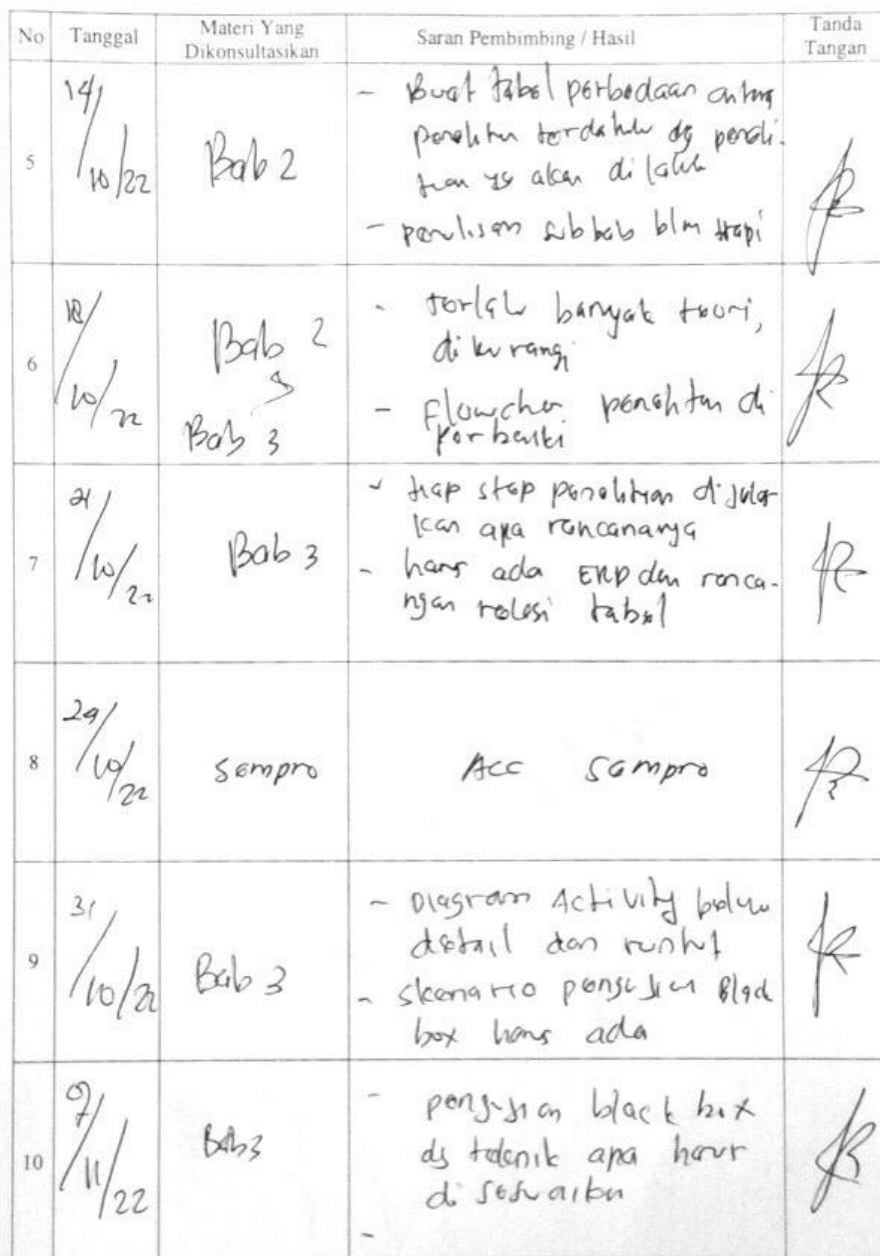 No Tanggal Materi Yang Dikonsultasikan Saran Pembimbing / Hasil Tanda Tangan
5 14/10/22 Bab 2
- Buat tabel perbedaan antara
penelitan terdahulu dg peneli-
tian yg akan di lakuk
- penulisan sub bab blm rapi
6 18/10/22 Bab 2
&
Bab 3
- terlalu banyak teori,
di kurangi
- Flowchar penelitan di
perbaiki
7 21/10/22 Bab 3
- tiap step penelitian di jelas
kan apa rancananya
- harus ada ERD dan ranca-
ngan relasi tabel
8 29/10/22 Sempro Acc Sempro
9 31/10/22 Bab 3
- Diagram Activity belum
detail dan runtut
- skenario pengujian Black
box harus ada
10 07/11/22 Bab 3
- pengujian black box
dg teknik apa harus
di sesuaikan
-